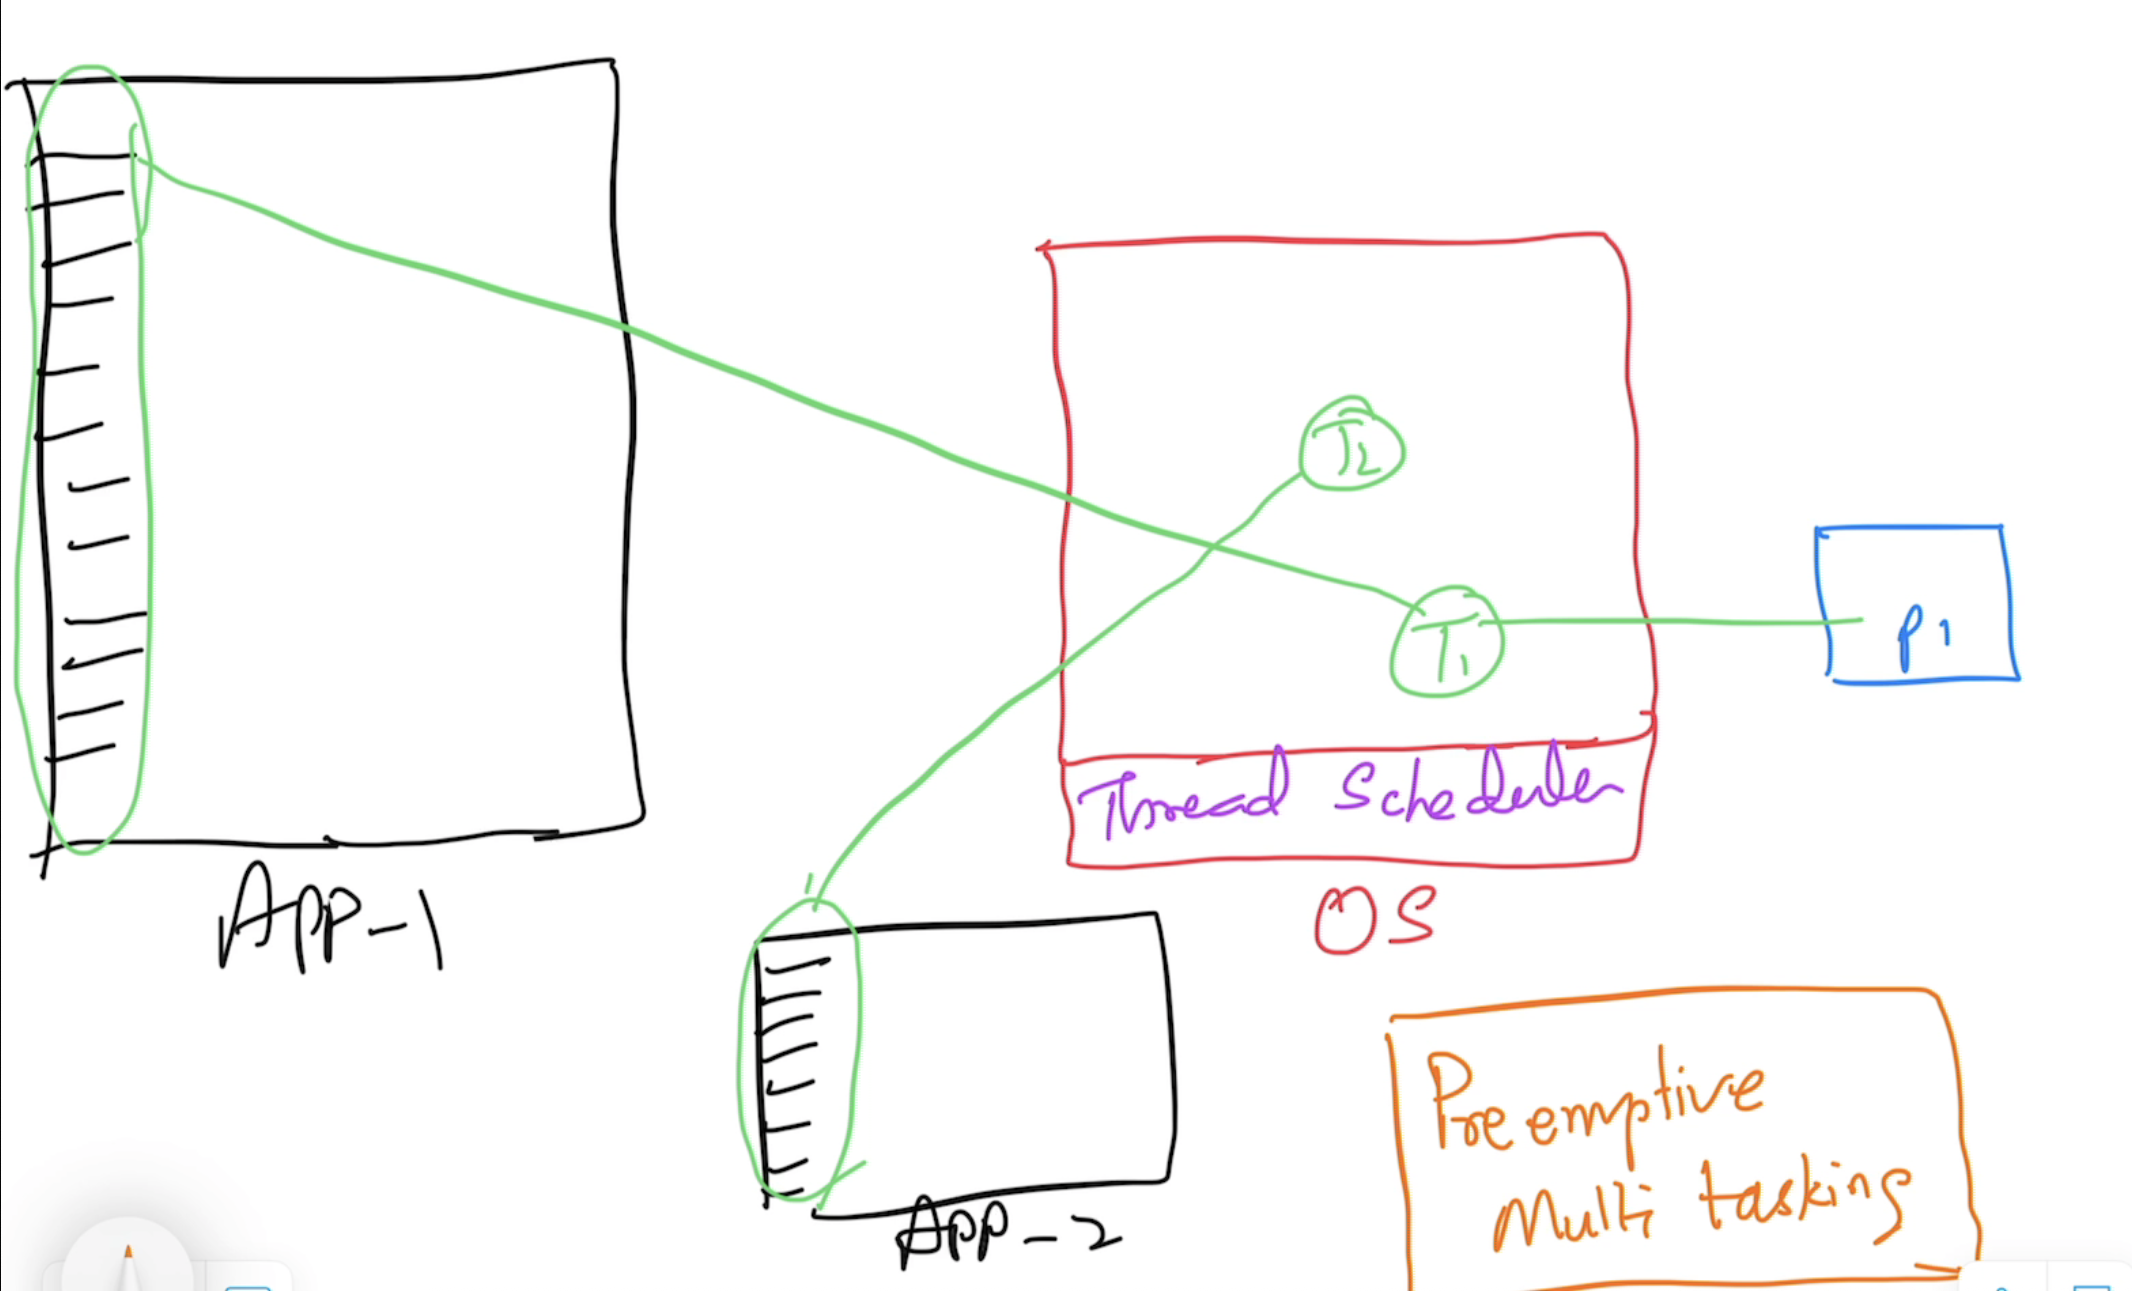 T2
T1
P1
Thread Scheduler
App-1
OS
Preemptive
Multi tasking
App-2